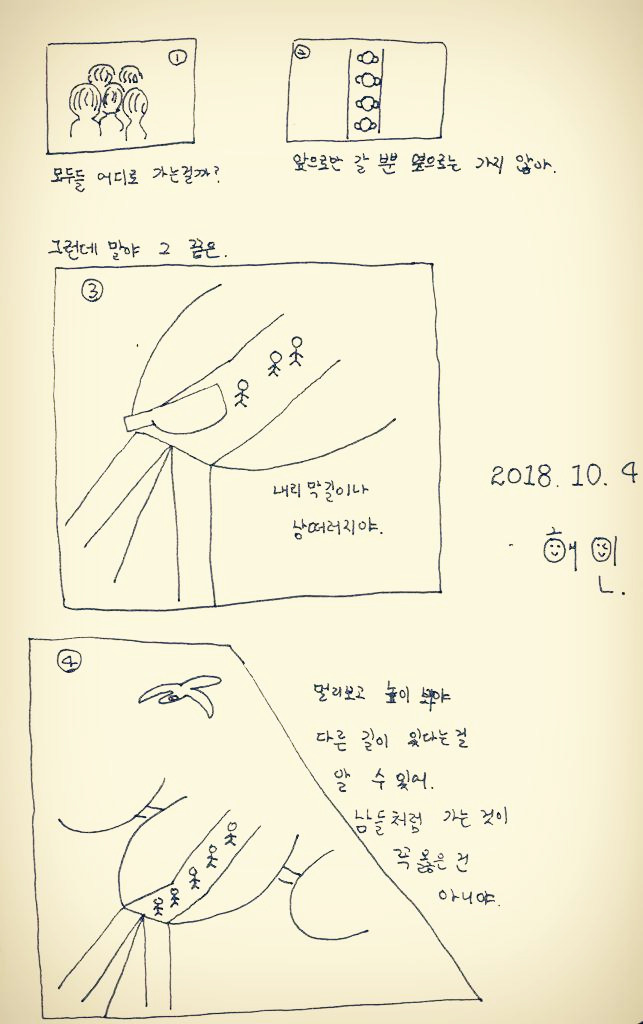 ①
②
모두들 어디로 가는걸까?
앞으로만 갈 뿐 옆으로는 가지 않아.
그런데 말야 그 끝은.
③
내리막길이나
낭떠러지야.
2018. 10. 4
혜인.
④
멀리보고 높이 봐야
다른 길이 있다는걸
알 수 있어.
남들처럼 가는 것이
꼭 옳은 건
아니야.